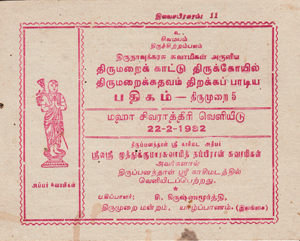 இலவசபிரசுரம்: 11
உ
சிவமயம்
திருச்சிற்றம்பலம்
திருநாவுக்கரசு சுவாமிகள் அருளிய
திருமறைக் காட்டு திருக்கோயில்
திருமறைக்கதவம் திறக்கப் பாடிய
பதிகம் - திருமுறை 5
மஹா சிவராத்திரி வெளியீடு
22-2-1982
திருப்பனந்தாள் ஸ்ரீ காசிமட அதிபர்
ஸ்ரீலஸ்ரீ முத்துக்குமாரசுவாமித் தம்பிரான் சுவாமிகள்
அவர்களால்
திருப்பனந்தாள் ஸ்ரீ காசிமடத்தில்
வெளியிடப்பெற்றது.
அப்பர் சுவாமிகள்
பதிப்பாளர்: சி. கிருஷ்ணமூர்த்தி,
திருமுறை மன்றம், யாழ்ப்பாணம். (இலங்கை)